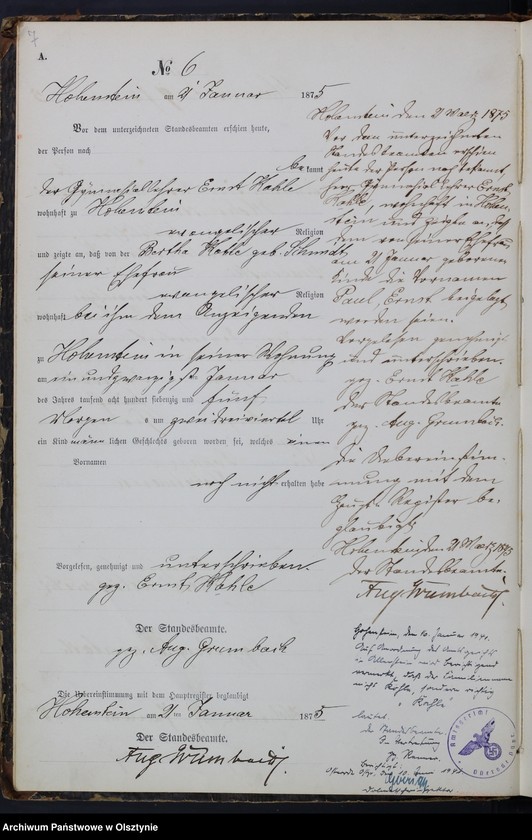 A.
No 6
Hohenstein am 21 Januar 1875
Vor dem unterzeichneten Standesbeamten erschien heute,
der Person nach
bekannt
der Gymnasiallehrer Ernst Kahle
wohnhaft zu Hohenstein
evangelischer Religion
und zeigte an, daß von der Bertha Kahle geb. Schmidt
seiner Ehefrau
evangelischer Religion
wohnhaft bei ihm dem Anzeigenden
zu Hohenstein in seiner Wohnung
am einundzwanzigst Januar
des Jahres tausend acht hundert siebenzig und fünf
Morgens um zweidreiviertel Uhr
ein Kind männlichen Geschlechts geboren worden sei, welches einen
Vornamen
noch nicht erhalten habe
Vorgelesen, genehmigt und unterschrieben.
gez. Ernst Kahle
Der Standesbeamte.
gez. Aug. Grumbach
Die Uebereinstimmung mit dem Hauptregister beglaubigt
Hohenstein am 21ten Januar 1875
Der Standesbeamte.
Aug. Grumbach.
Hohenstein den 2 März 1875
Vor dem unterzeichneten
Standesbeamten erschien
heute der Person nach bekannt
Gymnasiallehrer Ernst
Kahle, wohnhaft in Hohen
stein und zeigte an, daß
dem von seiner Ehefrau
am 21 Januar geborenen
Kinde die Vornamen
Paul, Ernst beigelegt
worden seien.
Vorgelesen genehmigt
und unterschrieben.
gez. Ernst Kahle
Der Standesbeamte
gez. Aug. Grumbach.
Die Uebereinstim-
mung mit dem
Haupt-Register be-
glaubigt
Hohenstein den 2 März 1875
Der Standesbeamte.
Aug. Grumbach.
Hohenstein, den 10. Januar 1941.
Auf Anordnung des Amtsgerichts
in Allenstein wird berichtigend
vermerkt, daß der Familienname
nicht Kohle, sondern richtig
"Kahle"
lautet.
Der Standesbeamte.
In Vertretung
Archiwum Państwowe w Olsztynie
Archiwum Państwowe w Olsztynie